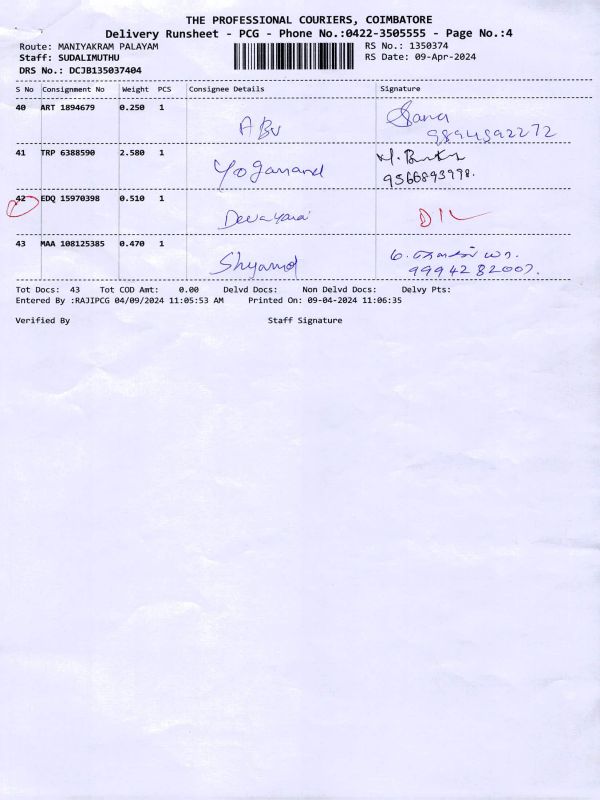 THE PROFESSIONAL COURIERS, COIMBATORE
Delivery Runsheet - PCG - Phone No.:0422-3505555 - Page No.:4
Route: MANIYAKRAM PALAYAM RS No.: 1350374
Staff: SUDALIMUTHU RS Date: 09-Apr-2024
DRS No.: DCJB135037404
S No Consignment No Weight PCS Consignee Details Signature
40 ART 1894679 0.250 1
ABU
9894592272
41 TRP 6388590 2.580 1
Yoganand
9566893998.
42 EDQ 15970398 0.510 1
D/L
43 MAA 108125385 0.470 1
Shyamol
9994282007.
Tot Docs: 43 Tot COD Amt: 0.00 Delvd Docs: Non Delvd Docs: Delvy Pts:
Entered By :RAJIPCG 04/09/2024 11:05:53 AM Printed On: 09-04-2024 11:06:35
Verified By Staff Signature